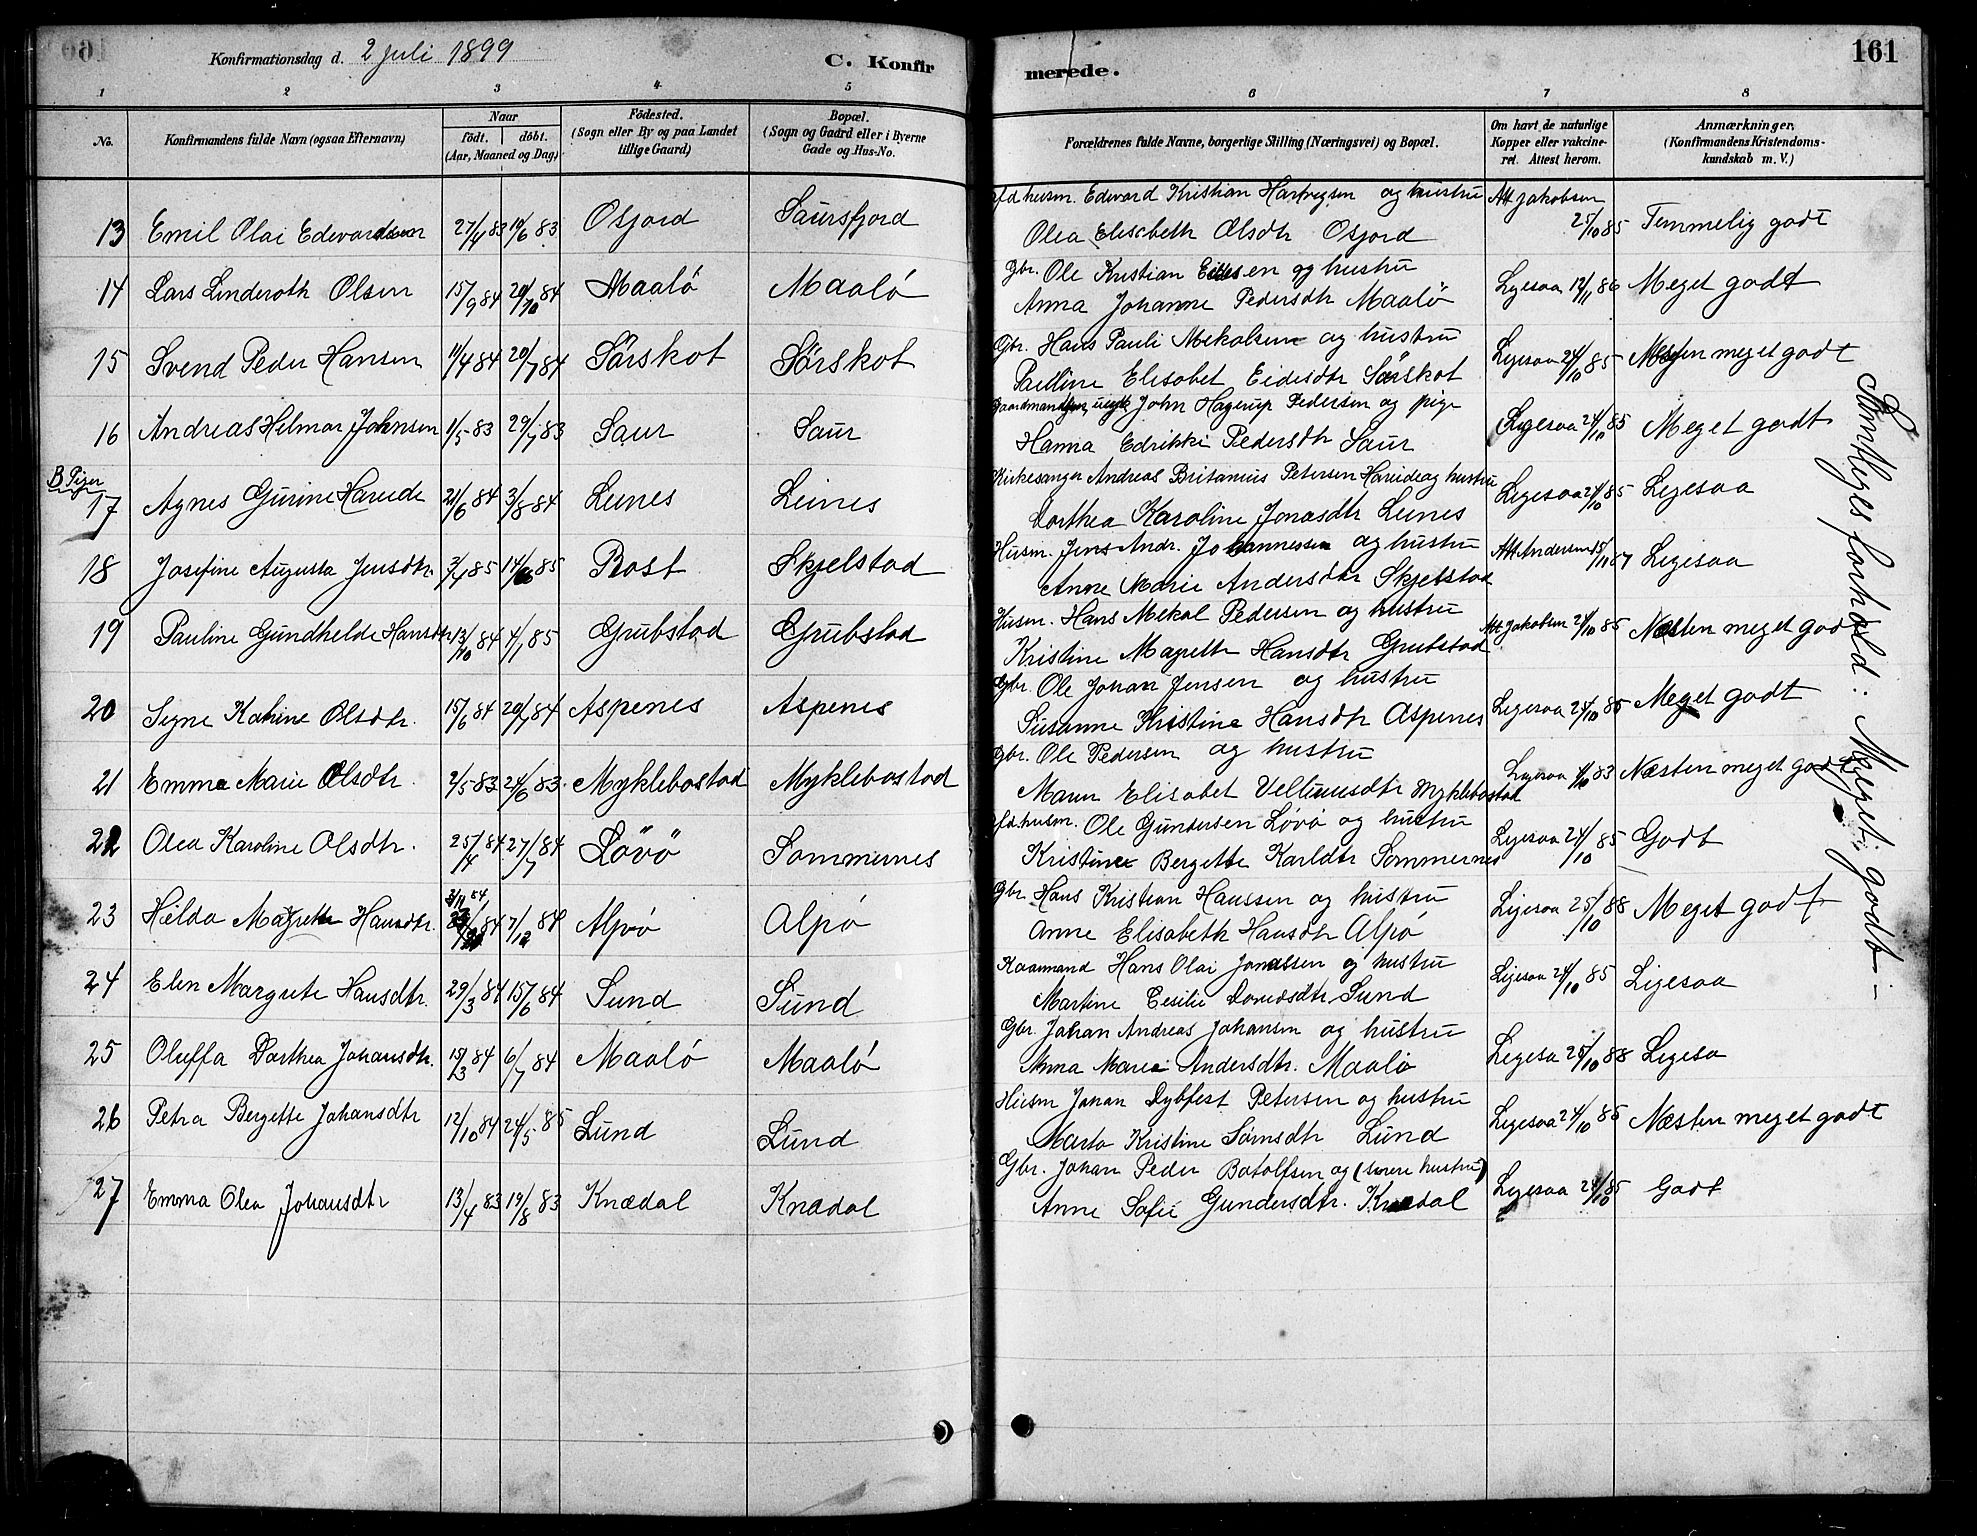 Konfirmationsdag d. 2 Juli 1899
C. Konfirmerede.
161
1 2 3 4 5 6 7 8
No.
Konfirmandens fulde Navn (ogsaa Efternavn)
Naar
födt. döbt.
(Aar, Maaned og Dag)
Födested.
(Sogn eller By og paa Landet
tillige Gaard)
Bopæl.
(Sogn og Gaard eller i Byerne
Gade og Hus-No.
Forældrenes fulde Navne, borgerlige Stilling (Næringsvei) og Bopæl.
Om havt de naturlige
Kopper eller vakcine-
ret. Attest herom.
Anmærkninger.
(Konfirmandens Kristendoms-
kundskab m. V.)
fd. husm. Edevard Kristian Hartvigsen og hustru Att Jakobsen
13 Emil Olai Edevardsen 27/4 83 10/6 83 Osfjord Saursfjord Olea Elisebeth Olsdtr Osfjord 25/10 85 Temmelig godt
Gbr. Ole Kristian Eidesen og hustru
14 Lars Linderoth Olsen 15/9 84 20/10 84 Maalö Maalö Anna Johanne Pedersdtr Maalö Ligesaa 12/11 86 Meget godt
Gbr. Hans Pauli Mekalsen og hustru
15 Svend Peder Hansen 11/4 84 20/7 84 Sörskot Sörskot Pauline Elisabet Eidesdtr Sörskot Ligesaa 24/10 85 Næsten meget godt
Gaardmandsøn, ungk. John Hagerup Pedersen og pige
16 Andreas Hilmar Johnsen 1/5 83 29/7 83 Saur Saur Hanna Edrikke Pedersdtr Saur Ligesaa 24/10 85 Meget godt
B Piger
Kirkesanger Andreas Britanius Petersen Haride og hustru
17 Agnes Gurine Haride 21/6 84 3/8 84 Leines Leines Dorthea Karoline Jonasdtr Leines Ligesaa 24/10 85 Ligesaa
Husm. Jens Andr. Johannessen og hustru
18 Josefine Augusta Jensdtr. 3/4 85 14/6 85 Rost Skjelstad Anne Marie Andersdtr Skjelstad Att Andersen 15/11 87 Ligesaa
Husm. Hans Mekal Pedersen og hustru
19 Pauline Gundhelde Hansdtr 13/10 84 4/1 85 Grubstad Grubstad Kristine Magrette Hansdtr Grubstad Att Jakobsen 24/10 85 Næsten meget godt
Gbr. Ole Johan Jensen og hustru
20 Signe Katrine Olsdtr. 15/6 84 20/7 84 Aspenes Aspenes Susanne Kristine Hansdtr Aspenes Ligesaa 24/10 85 Meget godt
Gbr. Ole Pedersen og hustru
21 Emma Marie Olsdtr. 2/5 83 24/6 83 Myklebostad Myklebostad Maren Elisabet Vellumsdtr Myklebostad Ligesaa /10 83 Næsten meget godt
fd. husm. Ole Gundersen Lövö og hustru
22 Olea Karoline Olsdtr. 25/4 84 27/7 84 Lövö Sommernes Kristine Bergette Karldtr Sommernes Ligesaa 24/10 85 Godt
Gbr. Hans Kristian Hanssen og hustru
23 Hilda Magrette Hansdtr. 84 7/12 84 Alpö Alpö Anne Elisabeth Hansdtr Alpö Ligesaa 25/10 88 Meget godt
Kaarmand Hans Olai Jonassen og hustru
24 Elen Margrete Hansdtr. 29/3 84 15/6 84 Sund Sund Martine Cesilie Davidsdtr Sund Ligesaa 24/10 85 Ligesaa
Gbr. Johan Andreas Johansen og hustru
25 Oluffa Dorthea Johansdtr. 15/3 84 6/7 84 Maalö Maalö Anna Marie Andersdtr. Maalö Ligesa 25/10 88 Ligesa
Husm Johan Dybfest Petersen og hustru
26 Petra Bergette Johansdtr 12/10 84 24/5 85 Lund Lund Marta Kristine Sörnsdtr Lund Ligesaa 24/10 85 Næsten meget godt
Gbr. Johan Peder Botolfsen og (senere hustru)
27 Emma Olea Johansdtr 13/4 83 19/8 83 Knædal Knædal Anne Sofie Gundersdtr. Knædal Ligesaa 24/10 85 Godt
Samtliges forhold: Meget godt